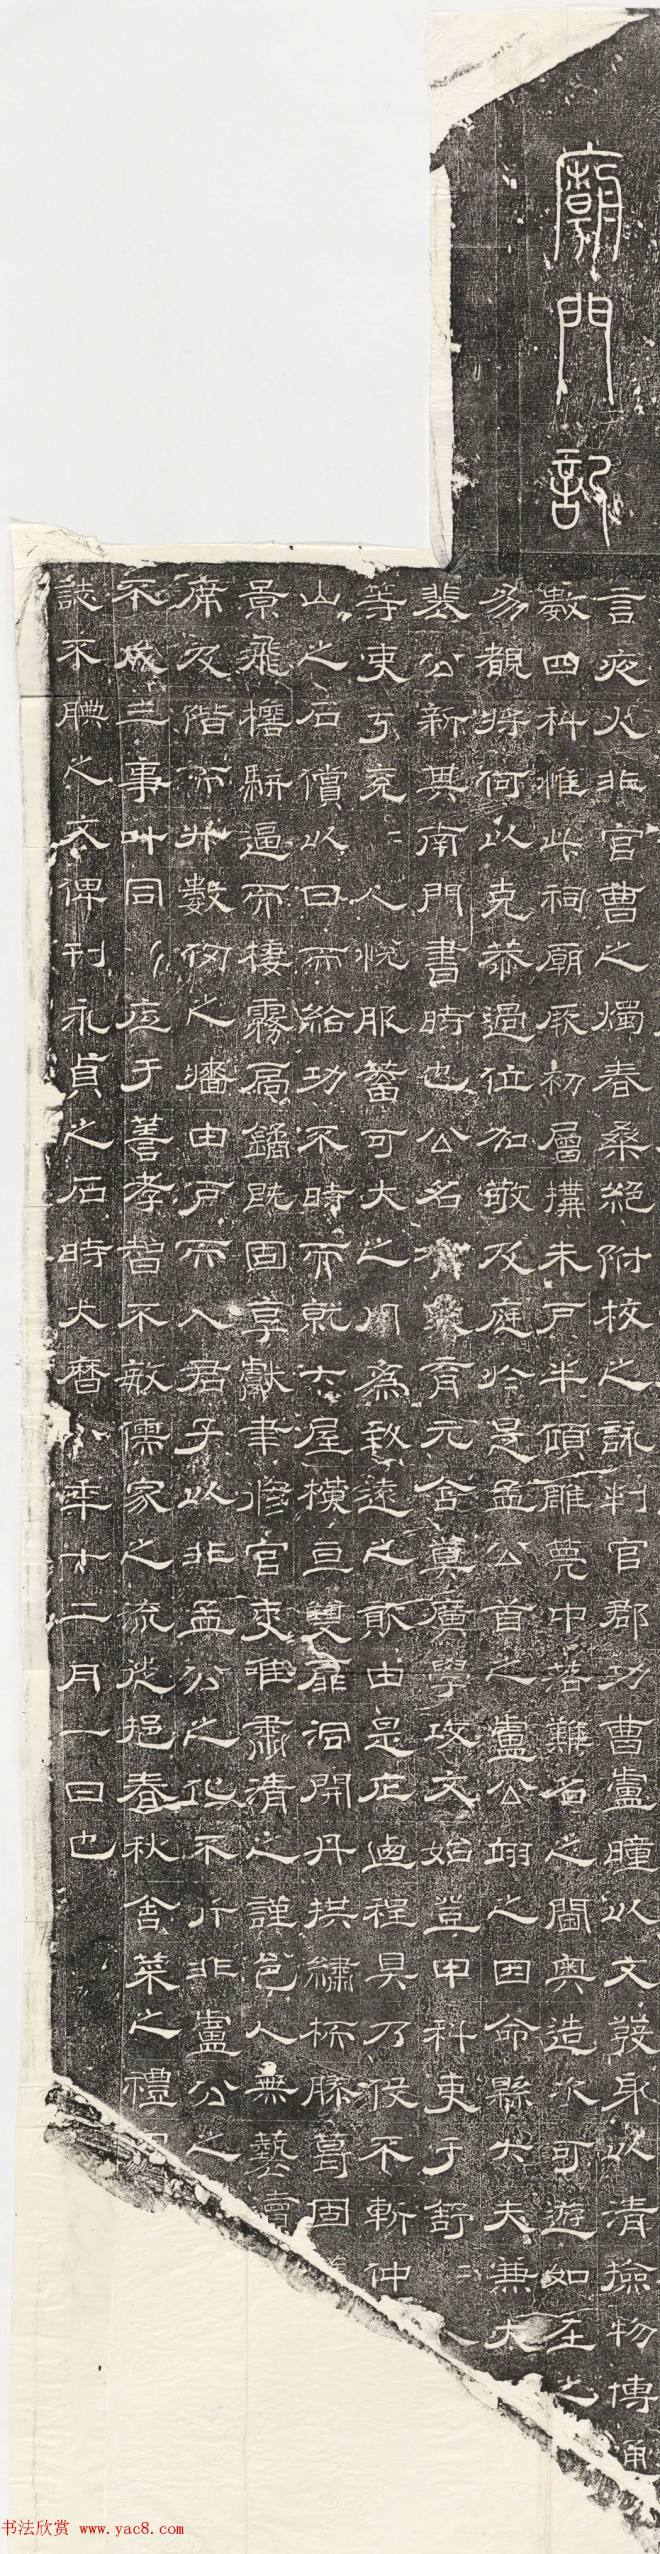 廟門記
言夜火非官曹之燭春桑絕附枝之詠判官郡功曹盧瞳以文發身以清撿物博通
數四科惟此祠廟厥初層構未戶半頹雕甍中落難名之閫奧造次可遊如在之
易觀將何以克恭過位加敬及庭於是孟公首之盧公翊之因命縣大夫兼大
裴公新其南門書時也公名育元含莫廣學攻文始登甲科吏于舒
等吏于兗人悅服蓄可大之用為致遠之取由是庀程具乃候不斬仲
山之石償以日而給功不時而就大屋橫亘雙扉洞開丹拱繡栭固
景飛檐駢逼而棲霧扃鐍既固享獻聿修官吏唯肅清之謹邑人無藝瀆
席及階而升數仞之墻由戶而入君子以非孟公之化不行非盧公之
不成三事叶同于善孝智不敏儒家之流從挹春秋舍菜之禮
誌不腆之文俾刊永貞之石時大曆八年十二月一日也
书法欣赏 www.yac8.com